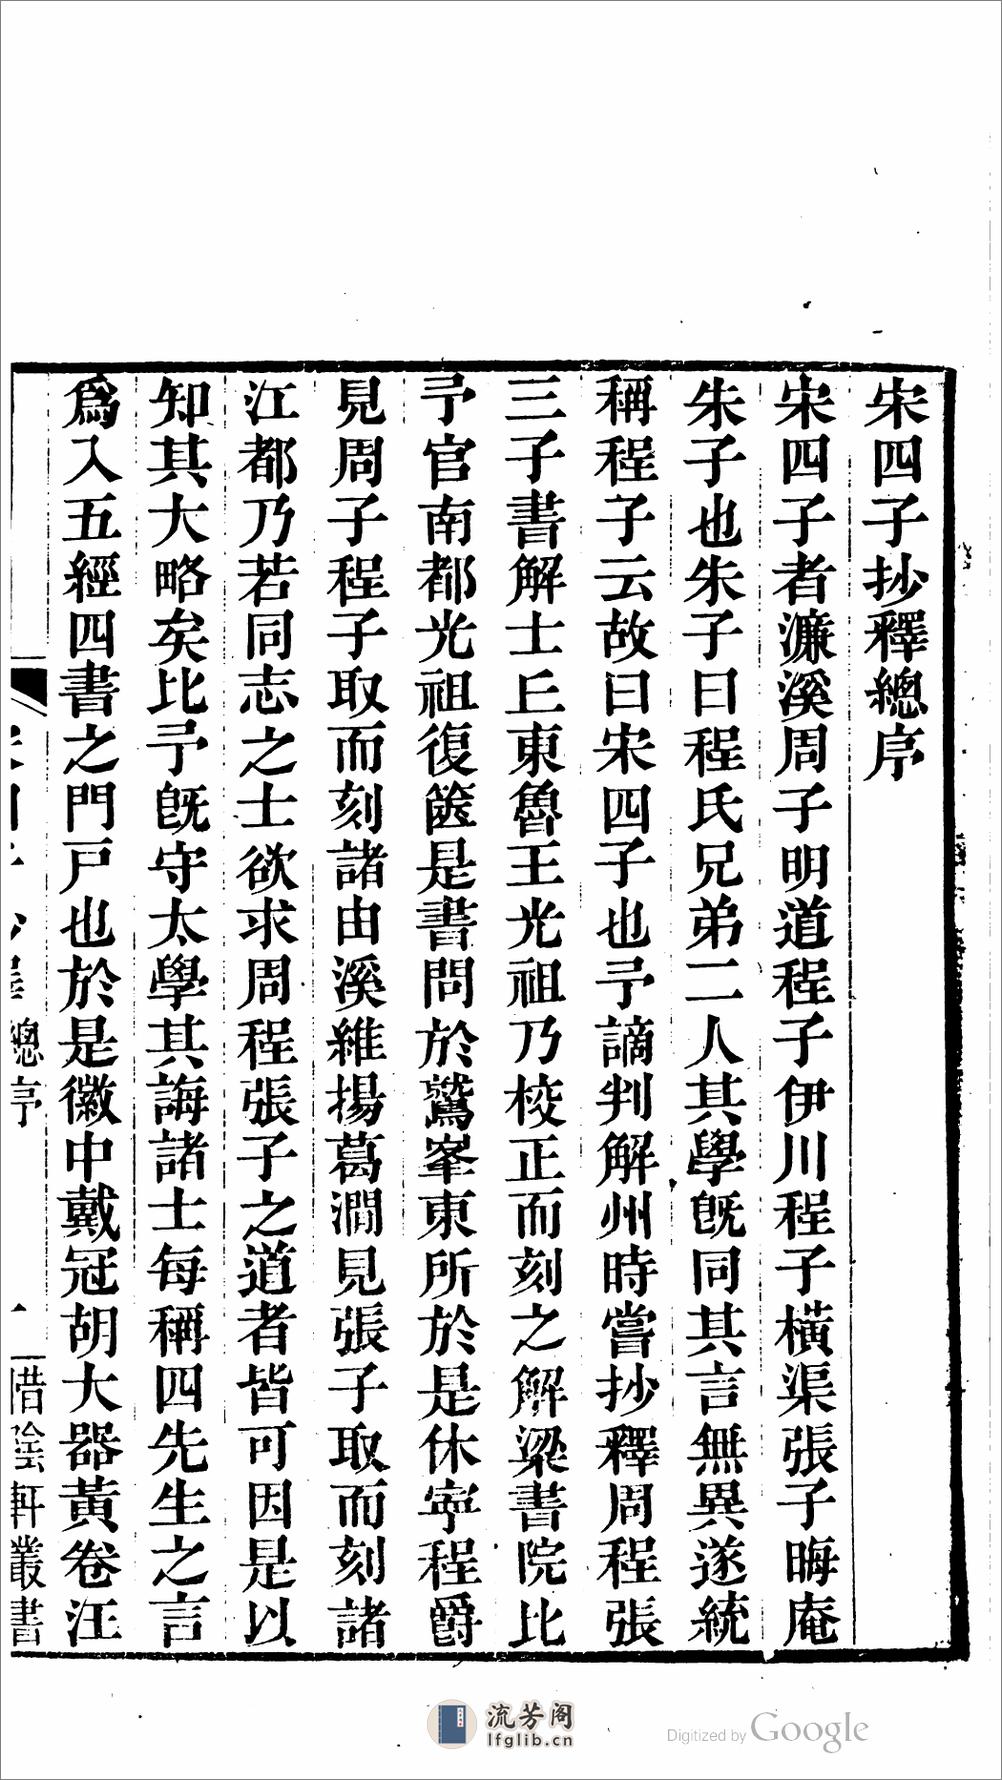 宋四子抄釋總序
宋四子者濂溪周子明道程子伊川程子橫渠張子晦庵
朱子也朱子曰程氏兄弟二人其學旣同其言無異遂統
稱程子云故曰宋四子也予謫判解州時嘗抄釋周程張
三子書解士丘東魯王光祖乃校正而刻之解梁書院比
予官南都光祖復篋是書問於鷲峯東所於是休寧程爵
見周子程子取而刻諸由溪維揚葛澗見張子取而刻諸
江都乃若同志之士欲求周程張子之道者皆可因是以
知其大略矣比予旣守太學其誨諸士每稱四先生之言
爲入五經四書之門戸也於是徽中戴冠胡大器黃卷汪
總序
一
惜陰軒叢書
流芳阁
lfglib.cn
Digitized by Google